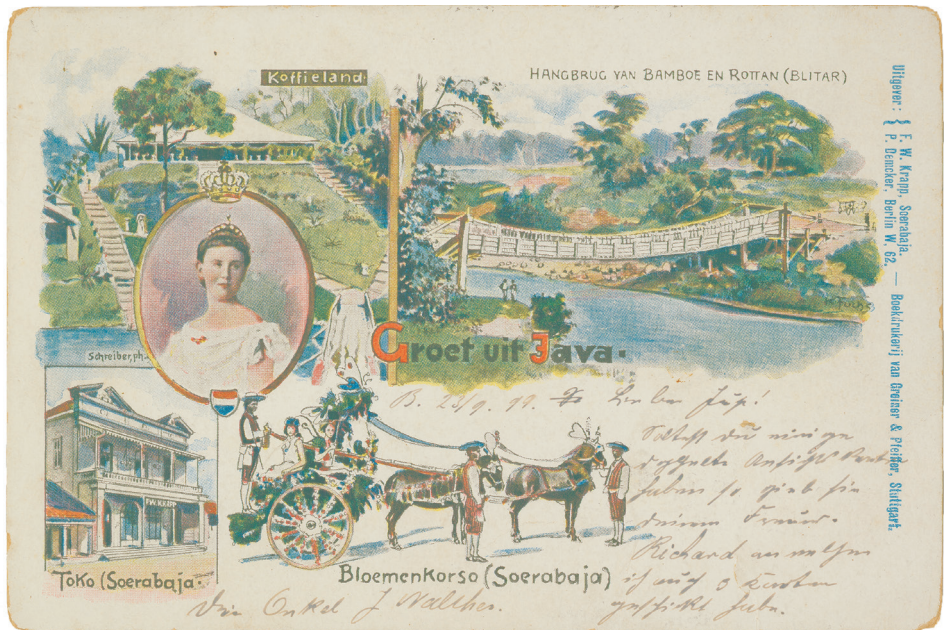 Koffieland.
HANGBRUG VAN BAMBOE EN ROTTAN (BLITAR)
Uitgever: { F. W. Krapp, Soerabaja. — Boekdrukerij van Greiner & Pfeiffer, Stuttgart.
{ P. Demcker, Berlin W. 62.
Schreiber, ph.
Groet uit Java.
F.W. KRAPP
Toko (Soerabaja.
Bloemenkorso (Soerabaja)
B. 29/9. 99. Lieber
Solltest du einige
doppelte Ansichts
haben so gieb sie
deinem Freund
Richard an welchen
ich auch 3 Karten
geschickt habe.
Dein Onkel J Walther.